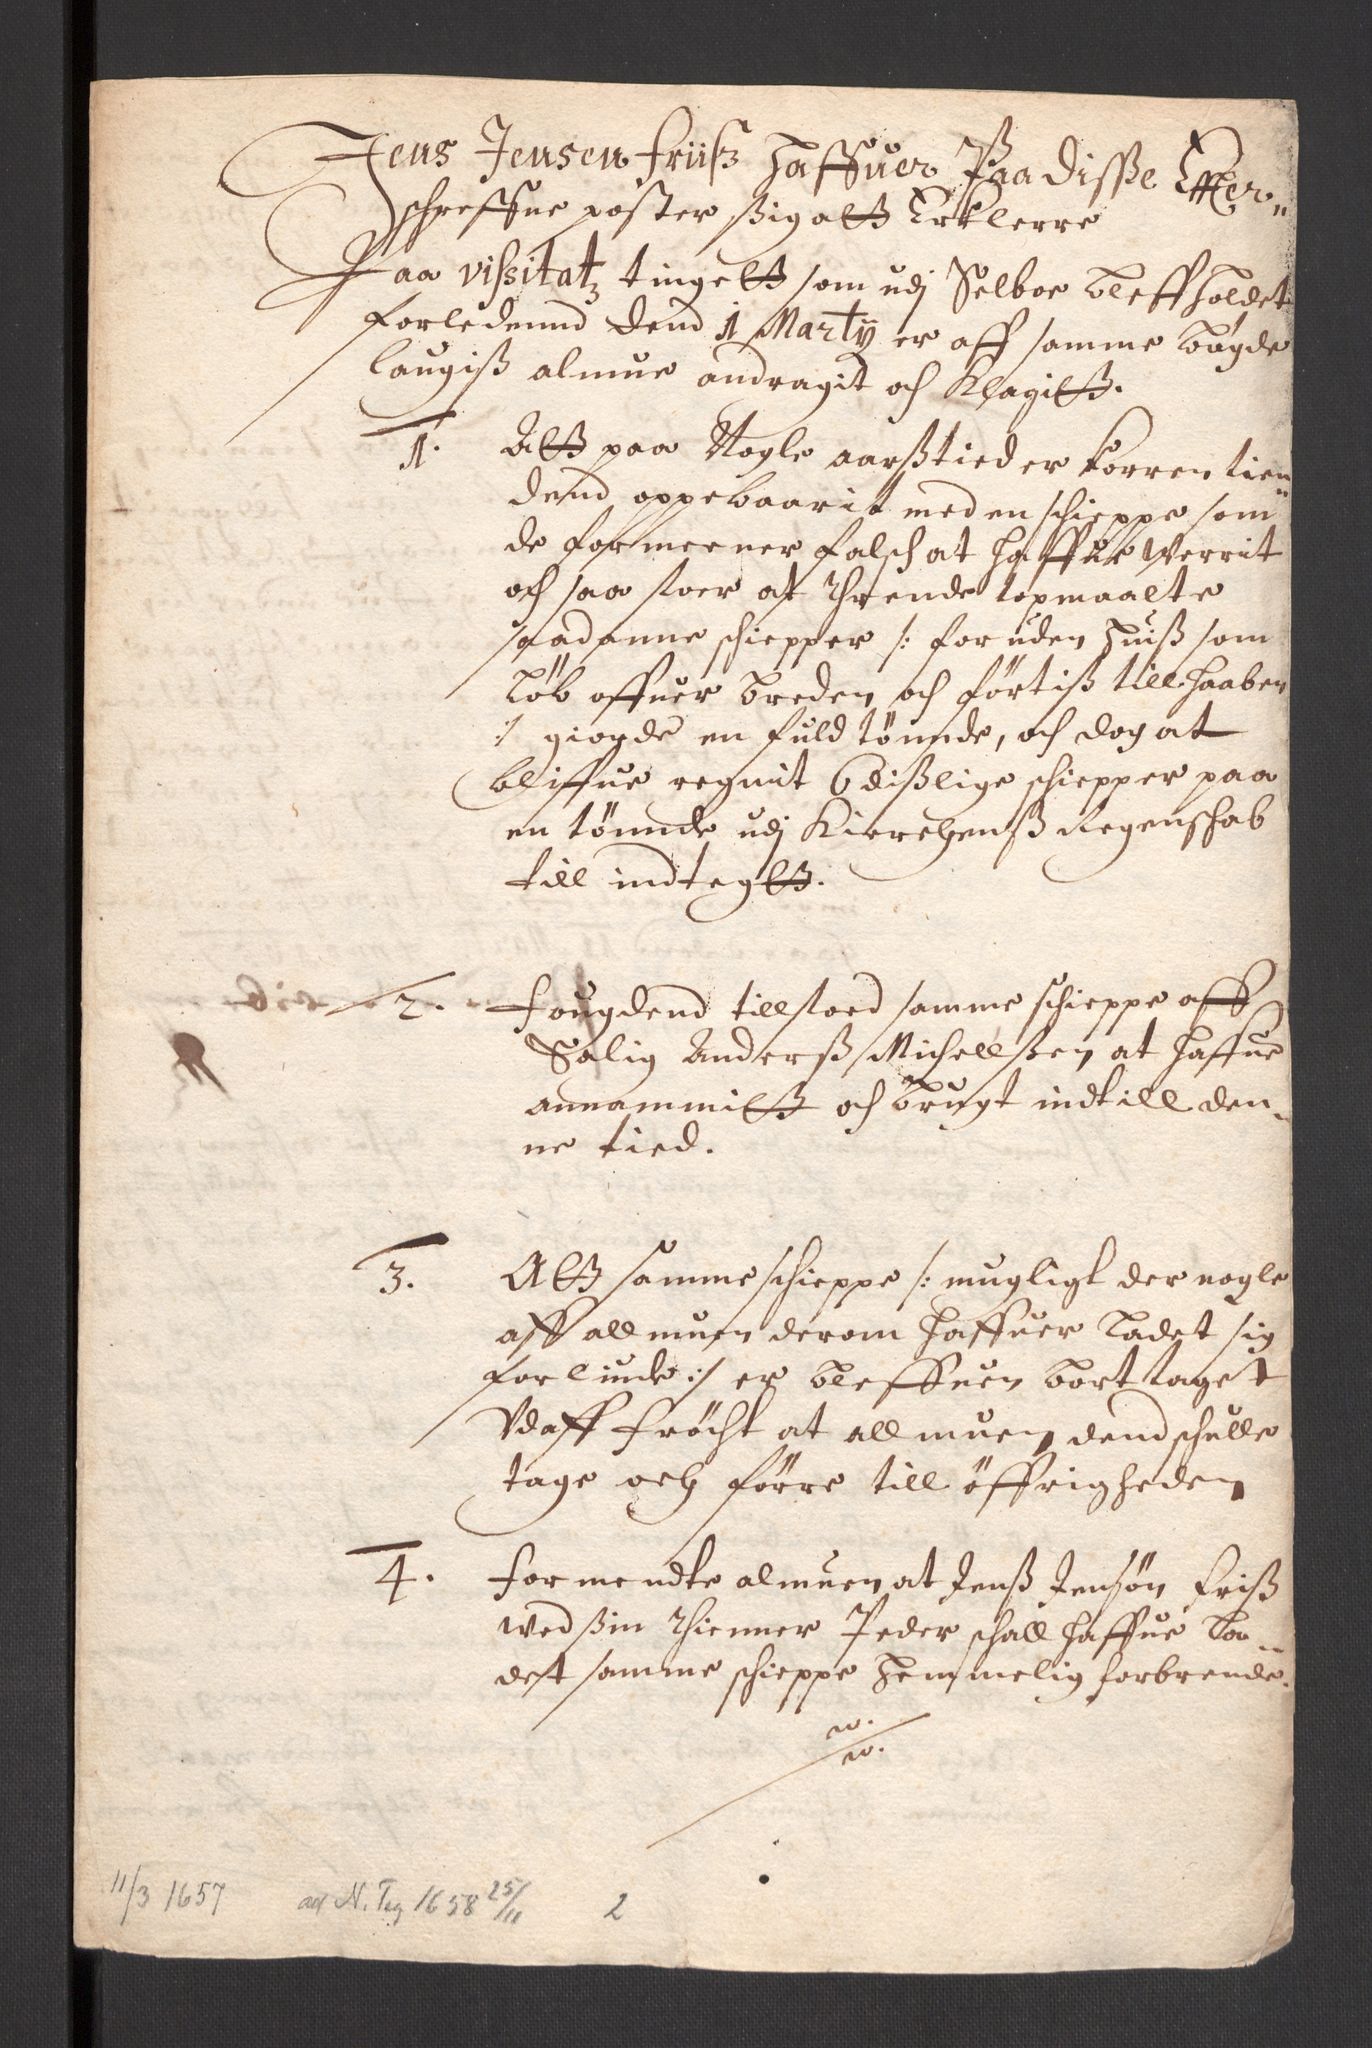 Jens Jensen friiß haffuer Paa disse Effter„
schreffne poster ßig alß Erklerre
Paa vissitatz tinget som udj Selboe bleff holdet
forledennd dend 1 Martij er aff samme bögde
laugiß almue andragit och klagitt.
1. Att paa Nogle aarßtied er korren tien„
dend oppebaarit med en schieppe som
de formeener falsch at haffue werrit
och saa stoer at thrende topmaalte
saadanne schiepper /: foruden huiß som
löb offuer breden och förtiß till haaben
:/ giorde en fuld tönnde, och dog at
bliffue regnit 6 dißlige schiepper paa
en tönnde udj Kierchenß Regenschab
till indtegtt.
2. fougdend tillstoed samme schieppe aff
Salig Anderß Michellßen at haffue
annammitt och brugt indtill den„
ne tied.
3. Att samme schieppe /: mugligt der nogle
aff allmuen derom haffuer ladet sig
forliude :/ er bleffuen bort taget
Vdaff fröcht at allmuen dend schulle
tage och förre till öffrigheden
4. formendte almuen at Jenß Jensön friß
wed ßin thienner Peder schall haffue la„
det samme schieppe hemmelig forbrende.
11/3 1657 ad N. Teg 1658 25/11 2